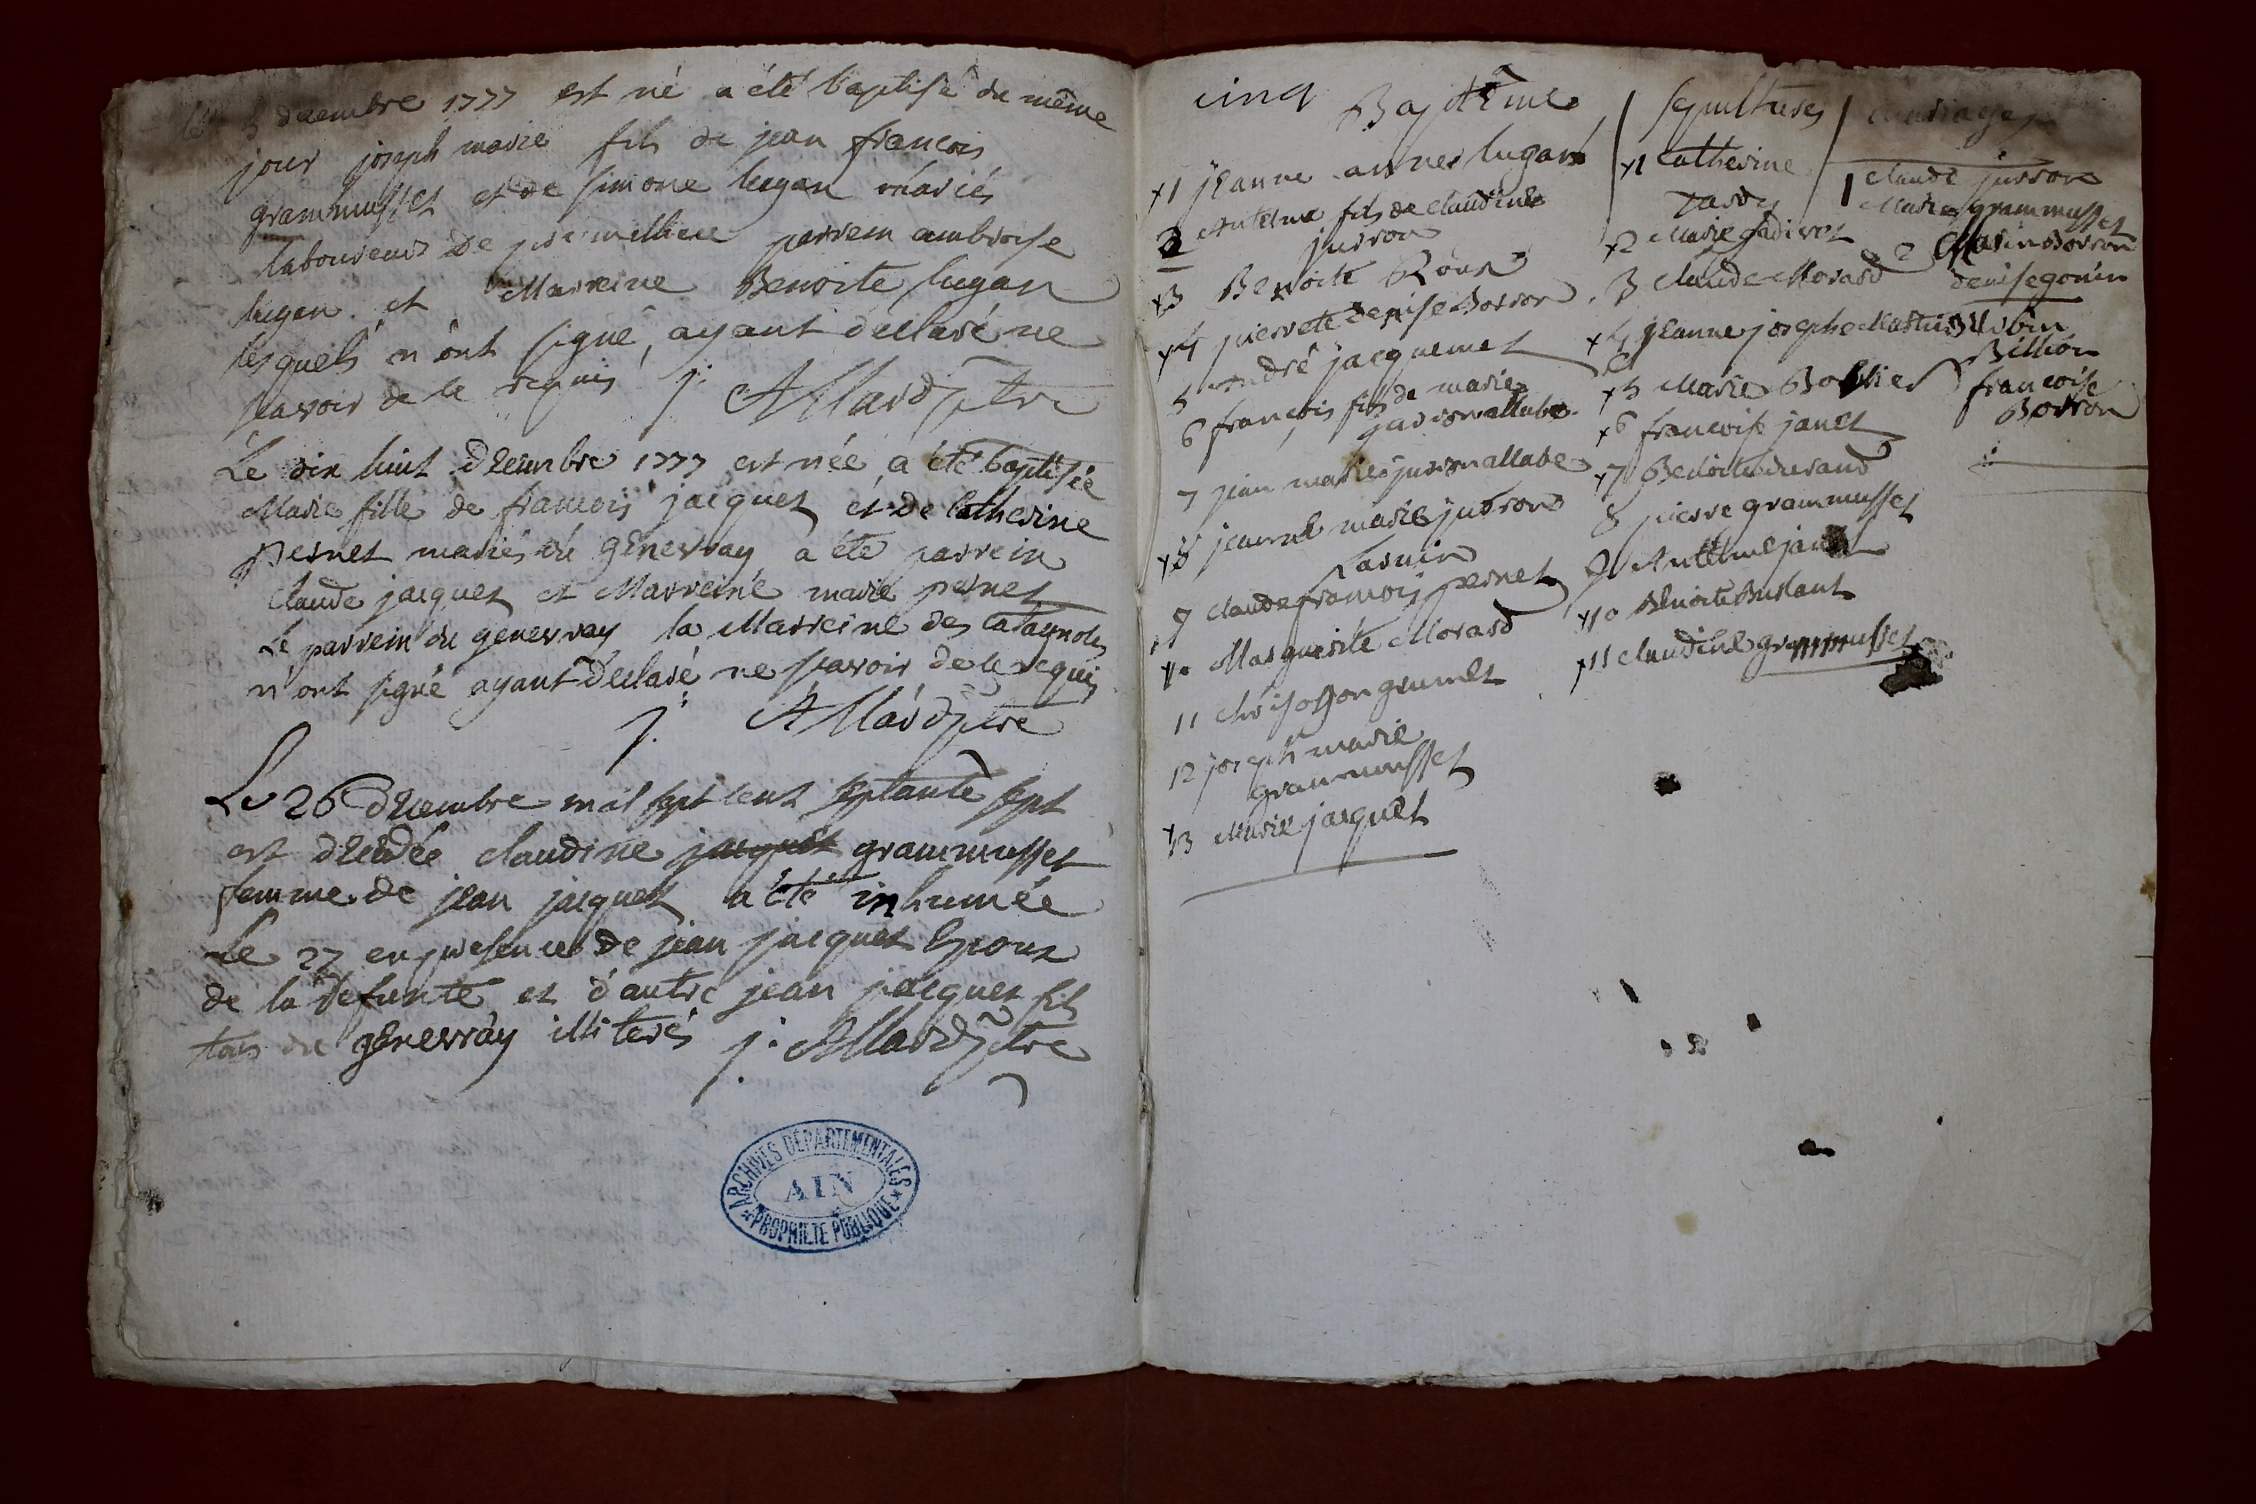 Le 5 decembre 1777 est né a été baptisé du même
jour joseph marie fils de jean francois
grammusset et de simone lugan mariés
laboureurs de parrein ambroise
lugan et Marreine Benoite lugan
lesquels n'ont signé, ayant déclaré ne
scavoir de le requis j. Allard ptre
Le dix huit decembre 1777 est née a été baptisée
Marie fille de francois jacquet et de Catherine
pernet mariés du genevray a été parrein
Claude jacquet et Marreine marie pernet
Le parrein du genevray la Marreine des Catagnoles
n'ont signé ayant déclaré ne scavoir de le requis
j. Allard ptre
Le 26 decembre mil sept cent septante sept
est decedée claudine jacquet grammusset
femme de jean jacquet a été inhumée
Le 27 en presence de jean jacquet Epoux
de la defunte et d'autre jean jacquet fils
tous du genevray illiterés j. Allard ptre
ARCHIVES DÉPARTEMENTALES
AIN
PROPRIÉTÉ PUBLIQUE
cinq Baptême
x1 jeanne annee lugan
2 Antelme fils de claudine
jurron
x3 Benoite Roux
x4 pierrete denise Borron
5 andré jacquemet
6 françois fils de marie
7 jean marie
x8 jeanne marie jurron
9 claude francois pernet
x10 Marguerite Morard
11 grumet
12 joseph marie
grammusset
13 Marie jacquet
sepultures
x1 Catherine
Tardy
x2 Marie
3 Claude Morard
x4 jeanne josephe Martin
x5 Marie
x6 francoise janet
x7 Benoite durand
8 pierre grammusset
9 Antelme janet
x10 Benoite
x11 claudine grammusset
mariages
1 Claude jurron
Marie grammusset
2 Marin Borron
denise gonin
3 Urbin
Billion
francoise
Borron